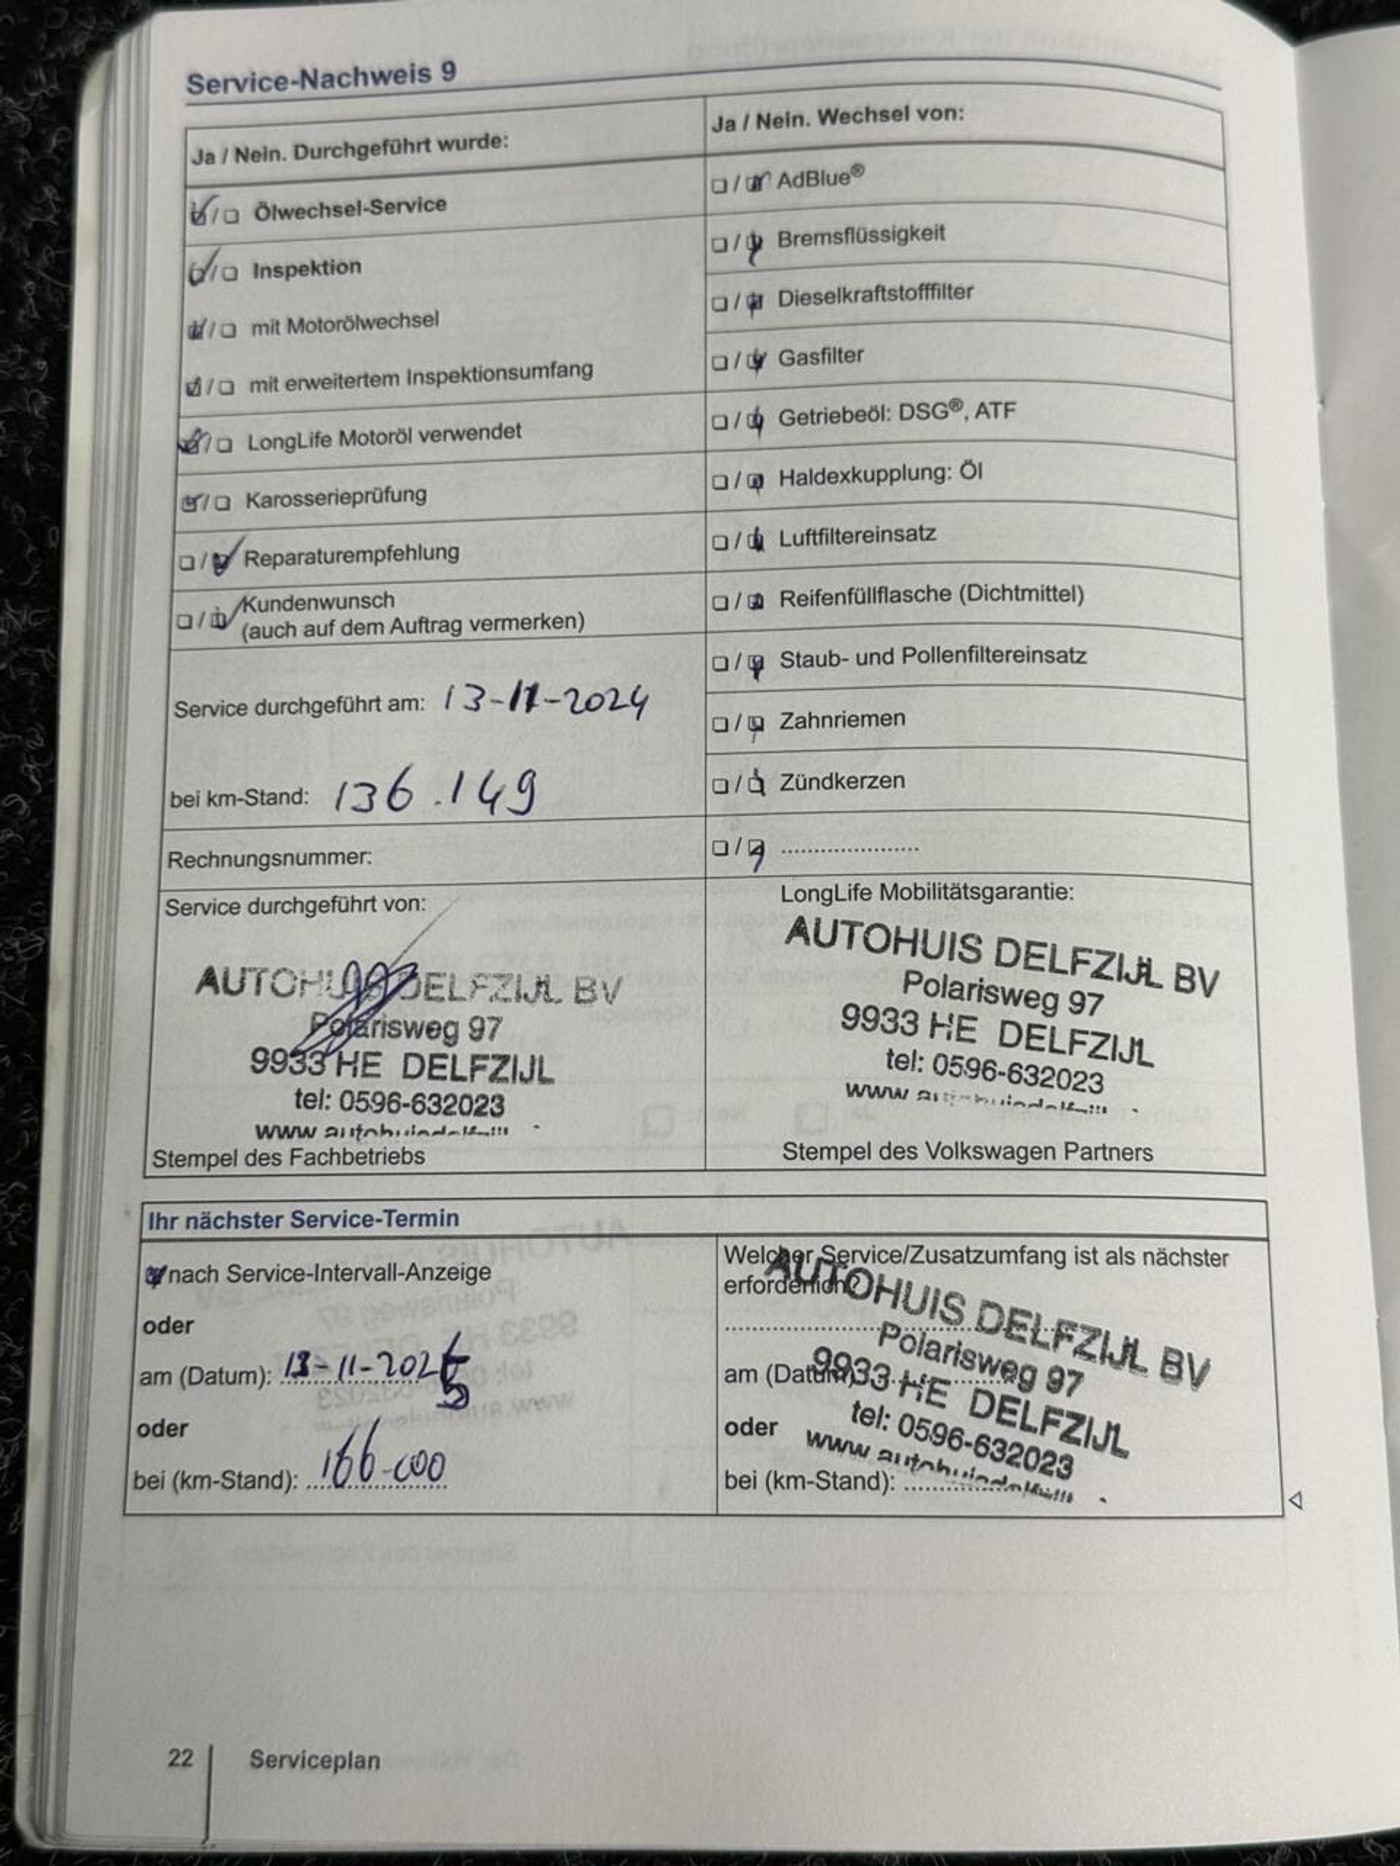 Service-Nachweis 9
Ja / Nein. Durchgeführt wurde:
Ölwechsel-Service
Inspektion
mit Motorölwechsel
mit erweitertem Inspektionsumfang
LongLife Motoröl verwendet
Karosserieprüfung
Reparaturempfehlung
Kundenwunsch
(auch auf dem Auftrag vermerken)
Service durchgeführt am: 13-11-2024
bei km-Stand: 136.149
Rechnungsnummer:
Service durchgeführt von:
AUTOHUIS DELFZIJL BV
Polarisweg 97
9933 HE DELFZIJL
tel: 0596-632023
www
Stempel des Fachbetriebs
Ja / Nein. Wechsel von:
AdBlue®
Bremsflüssigkeit
Dieselkraftstofffilter
Gasfilter
Getriebeöl: DSG®, ATF
Haldexkupplung: Öl
Luftfiltereinsatz
Reifenfüllflasche (Dichtmittel)
Staub- und Pollenfiltereinsatz
Zahnriemen
Zündkerzen
....................
LongLife Mobilitätsgarantie:
AUTOHUIS DELFZIJL BV
Polarisweg 97
9933 HE DELFZIJL
tel: 0596-632023
www
Stempel des Volkswagen Partners
Ihr nächster Service-Termin
nach Service-Intervall-Anzeige
oder
am (Datum): 13-11-2025
oder
bei (km-Stand): 166-000
Welcher Service/Zusatzumfang ist als nächster
erforderlich?
am (Datum):
oder
bei (km-Stand):
AUTOHUIS DELFZIJL BV
Polarisweg 97
9933 HE DELFZIJL
tel: 0596-632023
www
22 Serviceplan